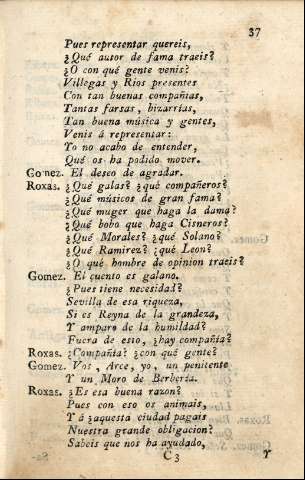 37
Pues representar quereis,
¿Qué autor de fama traeis?
¿O con qué gente venis?
Villegas y Rios presentes
Con tan buenas compañias,
Tantas farsas, bizarrías,
Tan buena música y gentes,
Venis á representar:
Yo no acabo de entender,
Qué os ha podido mover.
Gomez. El deseo de agradar.
Roxas. ¿Qué galas? ¿qué compañeros?
¿Qué músicos de gran fama?
¿Qué muger que haga la dama?
¿Qué bobo que haga Cisneros?
¿Qué Morales? ¿qué Solano?
¿Qué Ramirez? ¿qué Leon?
¿O qué hombre de opinion traeis?
Gomez. El cuento es galano.
¿Pues tiene necesidad?
Sevilla de esa riqueza,
Si es Reyna de la grandeza,
Y amparo de la humildad?
Fuera de esto, ¿hay compañía?
Roxas. ¿Compañía? ¿con qué gente?
Gomez. Vos, Arce, yo, un penitente
Y un Moro de Berbería.
Roxas. ¿Es esa buena razon?
Pues con eso os animais,
Y á ¿aquesta ciudad pagais
Nuestra grande obligacion?
Sabeis que nos ha ayudado,
C 3 Y